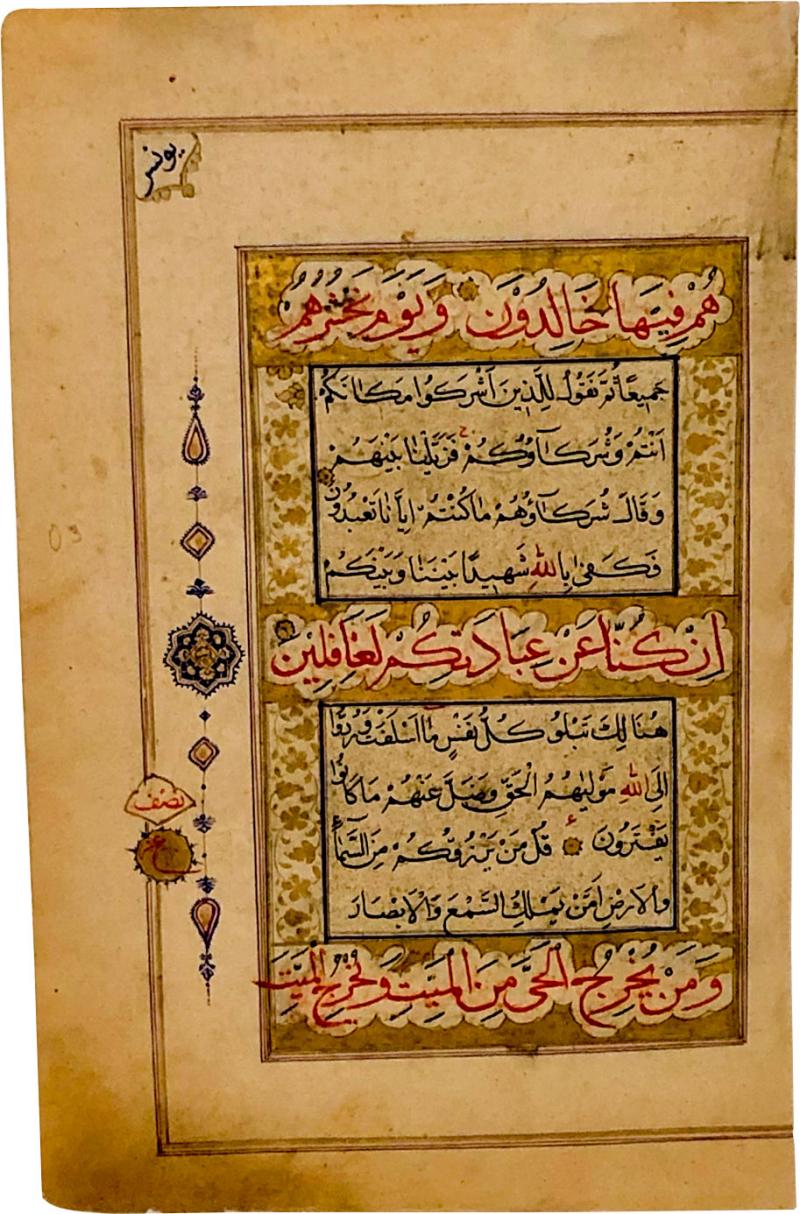 يونس
هُمْ فِيهَا خَالِدُونَ وَيَوْمَ نَحْشُرُهُمْ
جَمِيعًا ثُمَّ نَقُولُ لِلَّذِينَ أَشْرَكُوا مَكَانَكُمْ
أَنْتُمْ وَشُرَكَآؤُكُمْ فَزَيَّلْنَا بَيْنَهُمْ
وَقَالَ شُرَكَآؤُهُمْ مَا كُنْتُمْ إِيَّانَا تَعْبُدُونَ
فَكَفىٰ بِاللهِ شَهِيدًا بَيْنَنَا وَبَيْنَكُمْ
إِنْ كُنَّا عَنْ عِبَادَتِكُمْ لَغَافِلِينَ
هُنَالِكَ تَبْلُو كُلُّ نَفْسٍ مَا أَسْلَفَتْ وَرُدُّوا
إِلَى اللهِ مَوْلٰيهُمُ الْحَقِّ وَضَلَّ عَنْهُمْ مَا كَانُوا
يَفْتَرُونَ قُلْ مَنْ يَرْزُقُكُمْ مِنَ السَّمَآءِ
وَالْأَرْضِ أَمَّنْ يَمْلِكُ السَّمْعَ وَالْأَبْصَارَ
وَمَنْ يُخْرِجُ الْحَيَّ مِنَ الْمَيِّتِ وَيُخْرِجُ الْمَيِّتَ
نصف
ع